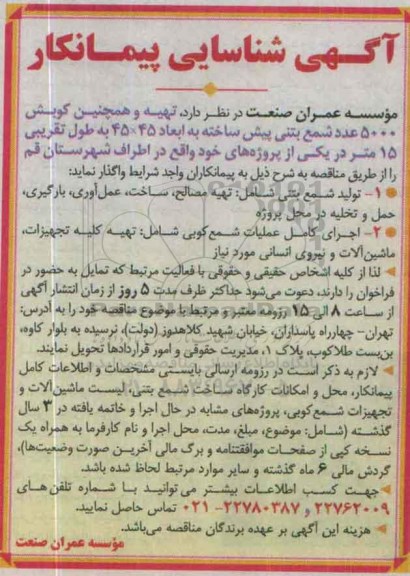 آگهی شناسایی پیمانکار
مؤسسه عمران صنعت در نظر دارد، تهیه و همچنین کوبش
۵۰۰۰ عدد شمع بتنی پیش ساخته به ابعاد ۴۵×۴۵ به طول تقریبی
۱۵ متر در یکی از پروژه‌های خود واقع در اطراف شهرستان قم
را از طریق مناقصه به شرح ذیل به پیمانکاران واجد شرایط واگذار نماید:
۱- تولید شمع بتنی شامل: تهیه مصالح، ساخت، عمل‌آوری، بارگیری،
حمل و تخلیه در محل پروژه
۲- اجرای کامل عملیات شمع‌کوبی شامل: تهیه کلیه تجهیزات،
ماشین‌آلات و نیروی انسانی مورد نیاز
لذا از کلیه اشخاص حقیقی و حقوقی با فعالیت مرتبط که تمایل به حضور در
فراخوان را دارند، دعوت می‌شود حداکثر ظرف مدت ۵ روز از زمان انتشار آگهی
از ساعت ۸ الی ۱۵ رزومه معتبر و مرتبط با موضوع مناقصه خود را به آدرس:
تهران- چهارراه پاسداران، خیابان شهید کلاهدوز (دولت)، نرسیده به بلوار کاوه،
بن‌بست طلاکوب، پلاک ۱، مدیریت حقوقی و امور قراردادها تحویل نمایند.
لازم به ذکر است در رزومه ارسالی بایستی مشخصات و اطلاعات کامل
پیمانکار، محل و امکانات کارگاه ساخت شمع بتنی، لیست ماشین‌آلات و
تجهیزات شمع‌کوبی، پروژه‌های مشابه در حال اجرا و خاتمه یافته در ۳ سال
گذشته (شامل: موضوع، مبلغ، مدت، محل اجرا و نام کارفرما به همراه یک
نسخه کپی از صفحات موافقتنامه و برگ مالی آخرین صورت وضعیت‌ها)،
گردش مالی ۶ ماه گذشته و سایر موارد مرتبط لحاظ شده باشد.
جهت کسب اطلاعات بیشتر می‌توانید با شماره تلفن‌های
۲۲۷۶۲۰۰۹ و ۲۲۷۸۰۳۸۷-۰۲۱ تماس حاصل نمایید.
هزینه این آگهی بر عهده برندگان مناقصه می‌باشد.
مؤسسه عمران صنعت